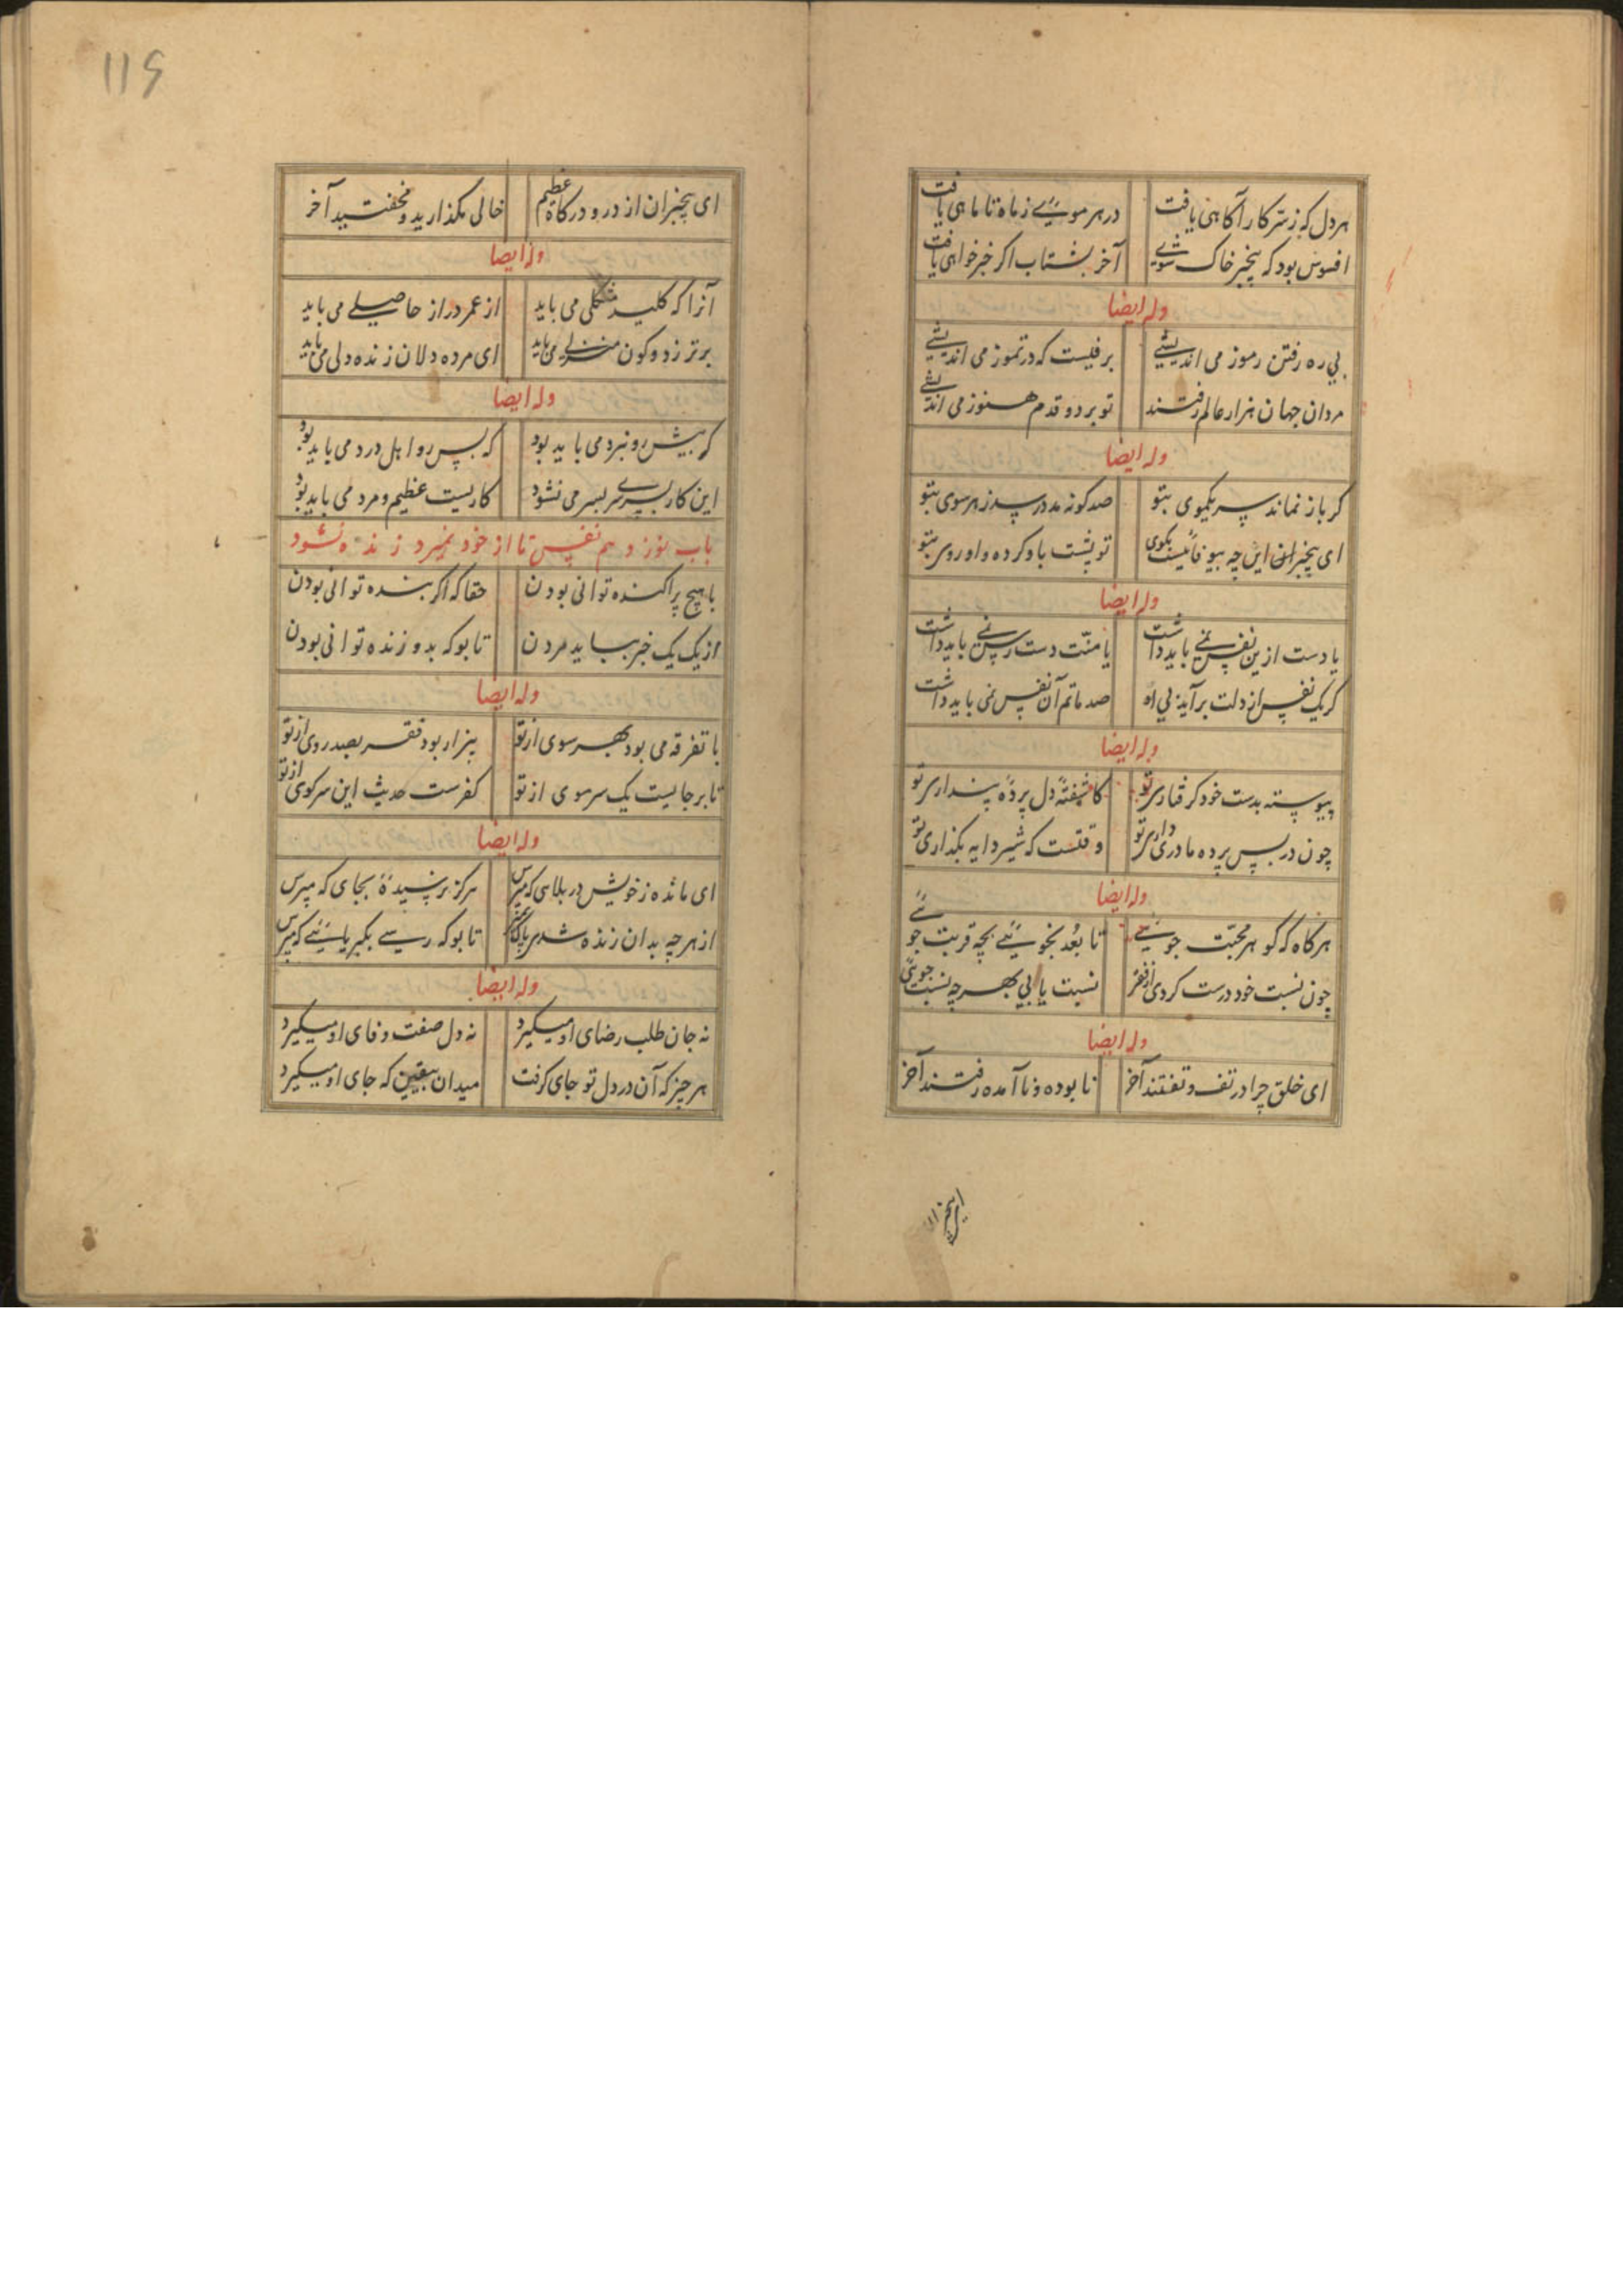 هر دل که ز سر کار آکاهی یافت در هر مویی ز ماه تا ماهی یافت
افسوس بود که بیخبر خاک شوی آخر بشتاب اکر خبر خواهی یافت
وله ایضا
بی ره رفتن رموز می اندیشی برفیست که در تموز می اندیشی
مردان جهان هزار عالم رفتند تو بر دو قدم هنوز می اندیشی
وله ایضا
کر باز نماند سر یکموی بتو صد کونه مدد رسد ز هر سوی بتو
ای بیخبران این چه بیوفائیست تو پشت باو کرده و او روی بتو
وله ایضا
یا دست ازین نفس نمی باید داشت یا منت دست رسنی باید داشت
کر یک نفس از دلت برآید بی او صد ماتم آن نفس نمی باید داشت
وله ایضا
پیوسته بدست خود کرفتاری تو کاشفتهٔ دل پردهٔ پنداری تو
چون در پس پرده مادری داری تو وقتست که شیر دایه بکذاری تو
وله ایضا
هرکاه که کوهر محبت جوئی تا بعد نجوئی بچه قربت جوئی
چون نسبت خود درست کردی از فقر نسبت یابی بهر چه نسبت جوئی
وله ایضا
ای خلق چرا در تف و تفتند آخر نا بوده و نا آمده رفتند آخر
ای بیخبران
119
ای بیخبران از در و درکاه عظیم خالی مکذارید و مخفتید آخر
وله ایضا
آنرا که کلید مشکلی می باید از عمر دراز حاصلی می باید
برتر ز دو کون منزلی می باید ای مرده دلان زنده دلی می باید
وله ایضا
که پیش رو نبرد می باید بود که پس رو اهل درد می باید بود
این کار بسرسری بسر می نشود کاریست عظیم و مرد می باید بود
باب نوزدهم نفس تا از خود نمیرد زنده نشود
با هیچ پراکنده توانی بودن حقا که اکر بنده توانی بودن
از یک یک خبر بباید مردن تا بو که بدو زنده توانی بودن
وله ایضا
با تفرقه می بود بهر سوی از تو بیزار بود فقر بصد روی از تو
تا بر جایست یک سر موی از تو کفرست حدیث این سر کوی از تو
وله ایضا
ای مانده ز خویش در بلای که مپرس هرکز نرسیدهٔ بجای که مپرس
از هر چه بدان زنده شدی پاک بمیر تا بو که رسی بکبریائی که مپرس
وله ایضا
نه جان طلب رضای او میکیرد نه دل صفت وفای او میکیرد
هر چیز که آن در دل تو جای کرفت میدان بیقین که جای او میکیرد